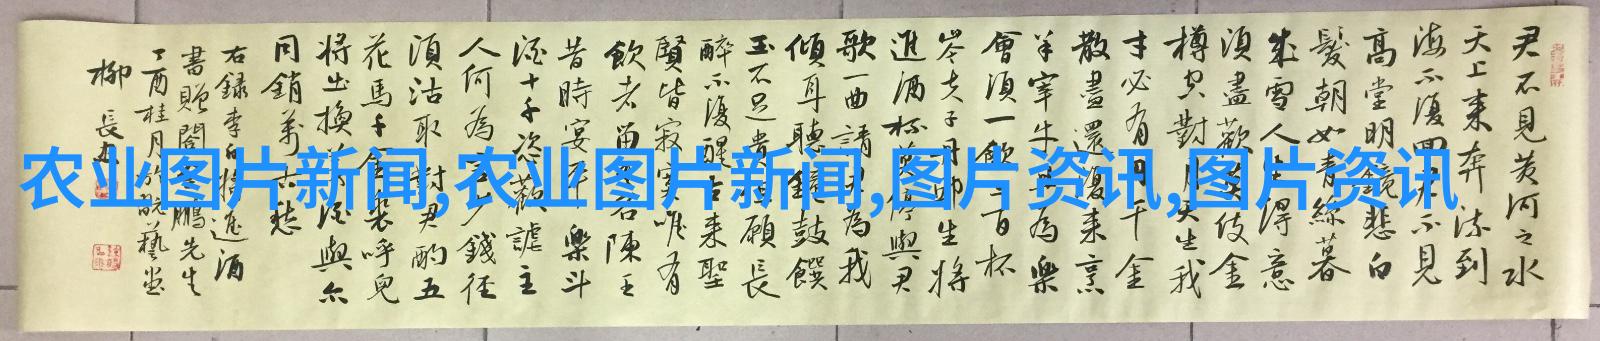 君不見黄河之水
天上来奔流到
海不復回君不見
高堂明鏡悲白
髮朝如青絲暮
成雪人生得意
須盡歡莫使金
樽空對月天生我
才必有用千金
散盡還復来烹
羊宰牛且為樂
會須一飲三百杯
岑夫子丹丘生將
進酒杯莫停與君
歌一曲請君為我
傾耳聽鐘鼓饌
玉不足貴但願長
醉不復醒古来聖
賢皆寂寞唯有
飲者留其名陳王
昔時宴平樂斗
酒十千恣歡謔主
人何為言少錢径
須沽取對君酌五
花馬千金裘呼兒
將出換美酒與尔
同銷萬古愁
右録李白將進酒
書贈閻鵬先生
丁酉桂月於皖藝堂
柳長忠
农业图片新闻,农业图片新闻,图片资讯,图片资讯